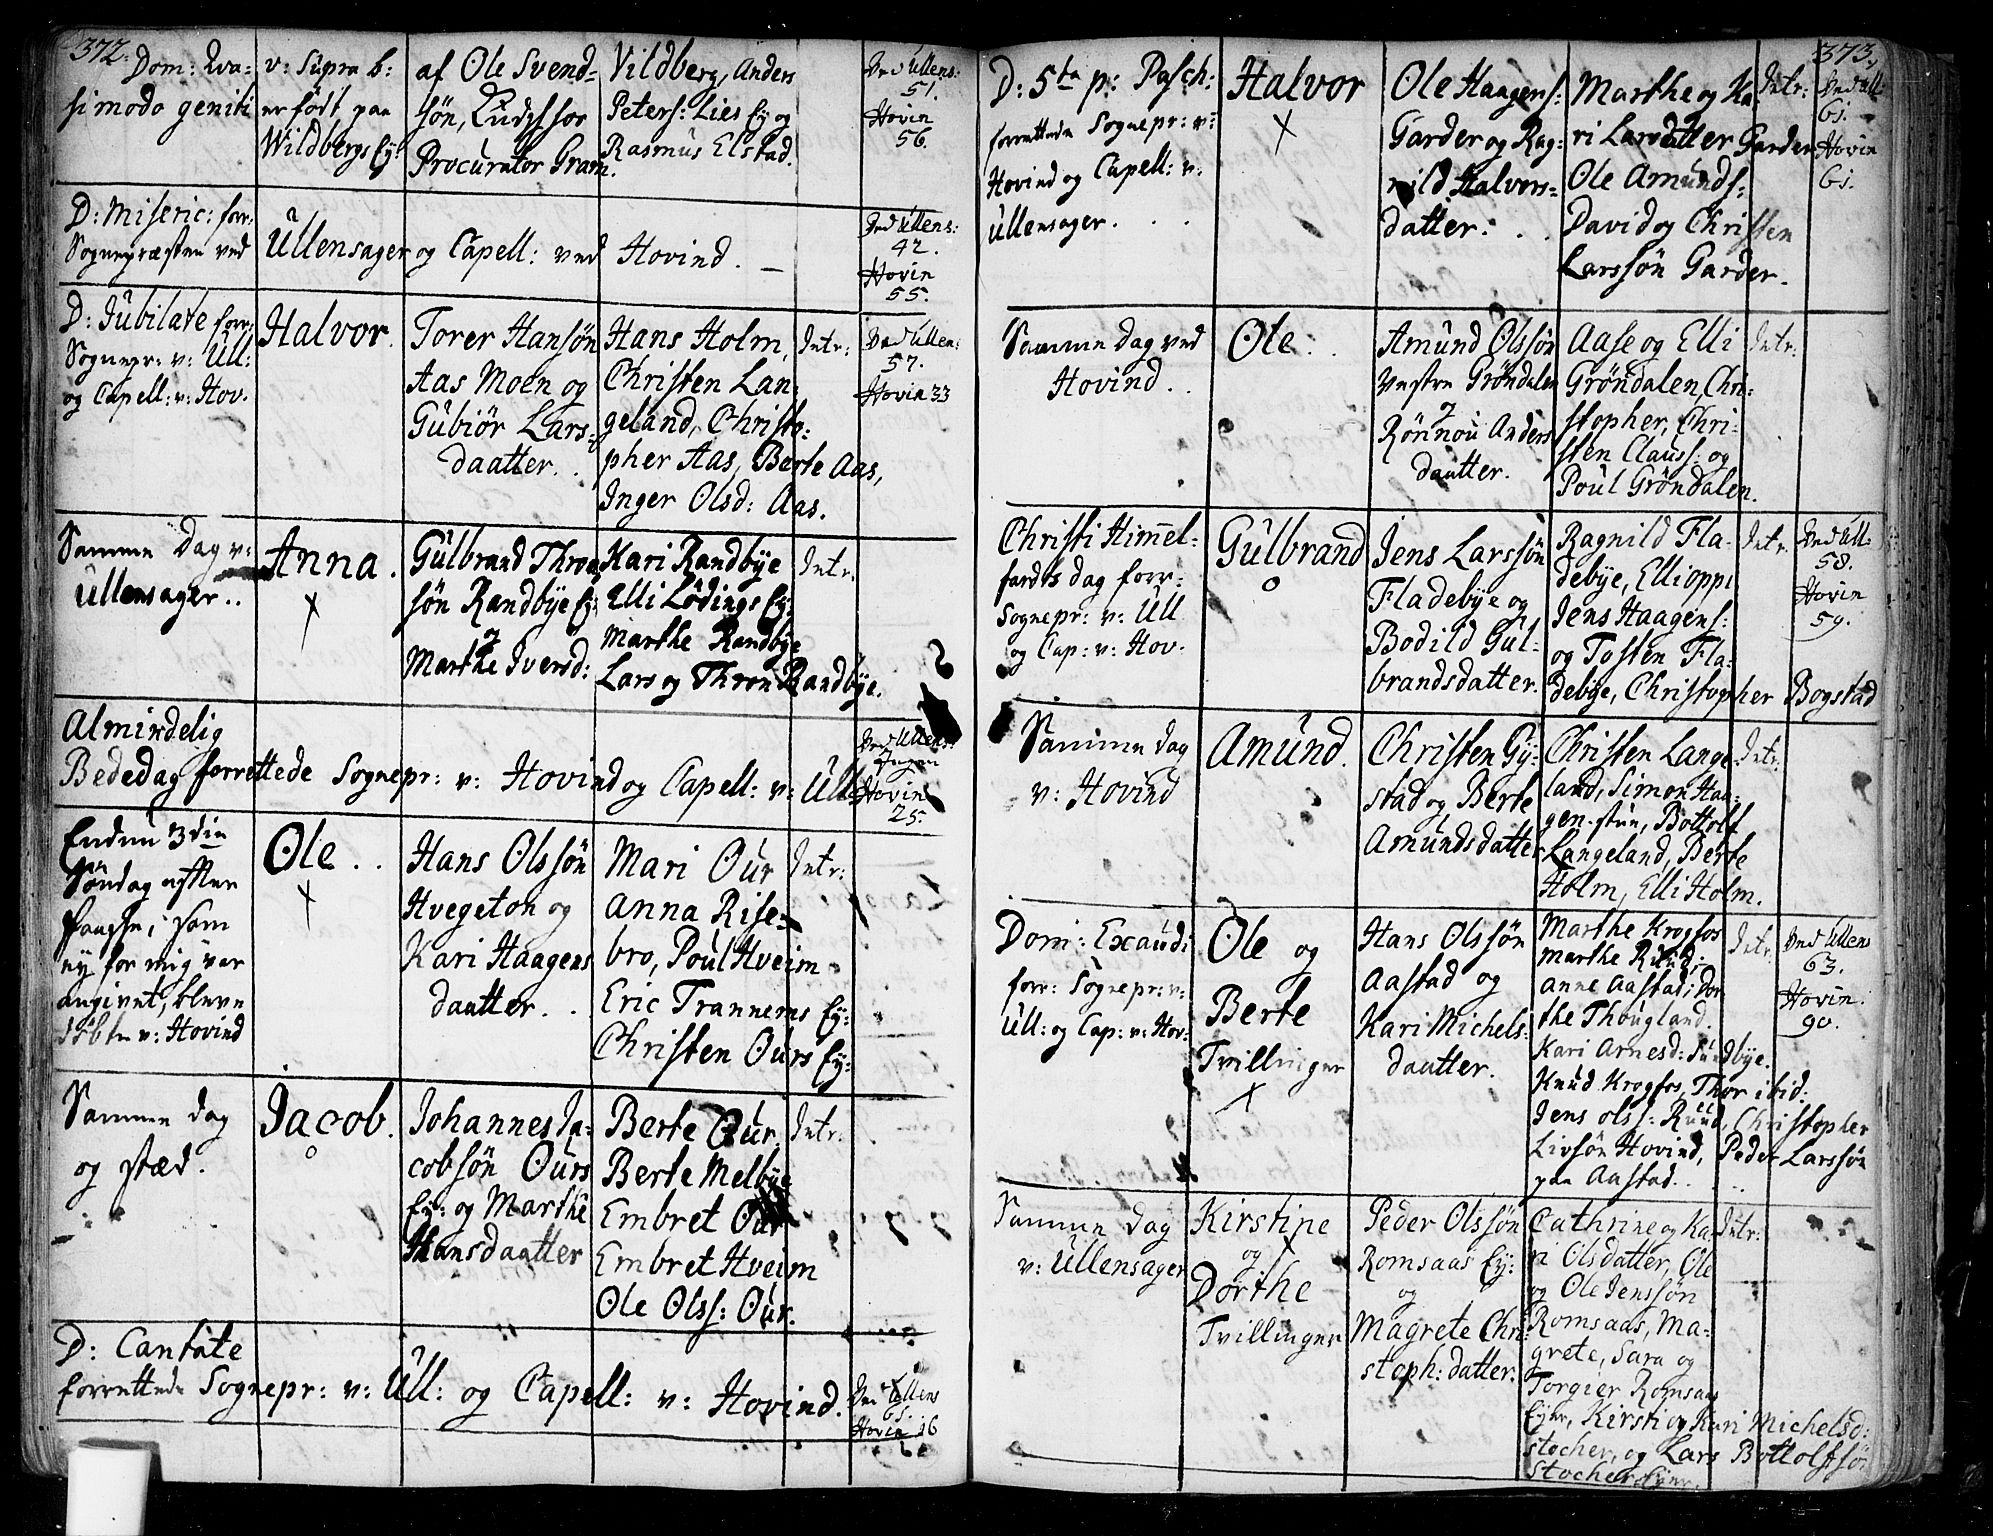 372.
Dom: Qva-
simodo geniti
v: Supra b:
er født paa
Wildbergs Ey:
af Ole Svend-
søn,
Procurator Gram.
Vildberg, Anders
Peters: Lies Ey og
Rasmus Elstad.
Ved Ullens:
51.
Hovin
56.
D: Miseric: forr:
Sognepræsten ved Ullensager og Capell: ved Hovind.
Ved Ullens:
42.
Hovin
55.
D: Jubilate forr:
Sognepr: v: Ull:
og Capell: v: Hov.
Halvor.
Torer Hansøn
Aas Moen og
Gubiør Lars-
daatter.
Hans Holm,
Christen Lan-
geland, Christo-
pher Aas, Berte Aas,
Inger Olsd: Aas.
Intr:
Ved Ullens:
57.
Hovin 33
Samme Dag v:
Ullensager..
Anna.
Gulbrand Thron
søn Randbye Ey:
og
Marthe Iversd:
Kari Randbye
Elli Lødings Ey:
Marthe Randbye
Lars og Thron Randbye.
Intr.
Almindelig
Bededag forrettede Sognepr: v: Hovind og Capell: v: Ull:
Ved Ullens:
Ingen
Hovin
25.
Endnu 3die
Søndag efter
Paaske, som
ey for mig var
angivet, bleve
døbte v: Hovind
Ole..
Hans Olssøn
Hvegeton og
Kari Haagens
daatter..
Mari Our
Anna Rise-
bro, Poul Hveim
Eric Trannems Ey:
Christen Ours Ey:
Intr:
Samme dag
og stæd.
Jacob.
Johannes Ja-
cobsøn Ours
Ey: og Marthe
Hansdaatter
Berte Our
Berte Melbye
Embret Our
Embret Hveim
Ole Olss: Our.
Intr:
D: Cantate
forrettede Sognepr: v: Ull: og Capell: v: Hovind.
Ved Ullens
61.
Hovin 16
373.
D: 5ta p: Pasch:
forrettede Sognepr: v:
Hovind og Capell: v:
Ullensager...
Halvor
Ole Haagens:
Garder og Rag-
nild Halvors-
datter...
Marthe og Ka-
ri Larsdatter Garder
Ole Amunds:
David og Christen
Larssøn Garder.
Intr:
Ved Ull:
61.
Hovin
61.
Samme Dag ved
Hovind..
Ole..
Amund Olssøn
Vestre Grøndalen
og
Rønnou Anders
daatter.
Aase og Elli
Grøndalen, Chri-
stopher, Chri-
sten Clauss: og
Poul Grøndalen.
Intr:
Christi Himmel-
farts dag forr-
Sognepr: v: Ull
og Cap: v: Hov.
Gulbrand
Jens Larssøn
Fladebye og
Bodild Gul-
brandsdatter.
Ragnild Fla-
debye, Elli oppi
Jens Haagens:
og Tosten Fla-
debye, Christopher Bogstad
Intr.
Ved Ull:
58.
Hovin
59.
Samme dag
v: Hovind
Amund.
Christen Gy-
stad og Berte
Amundsdatter
Christen Lange-
land, Simon Haa-
gen-stun, Bottolf
Langeland, Berte
Holm, Elli Holm.
Intr.
Dom: Exaudi
forr: Sognepr: v:
Ull: og Cap: v: Hov.
Ole og
Berte
Tvillinger
Hans Olssøn
Aastad og
Kari Michels:
daatter.
Marthe Krogfos
Marthe Ruud;
Anne Aastad; Dor
the Thougland.
Kari Arnesd: Sundbye.
Knud Krogfos, Thor ibid:
Jens Olss: Ruud, Christopher
Livsøn Hovind, Peder Larssøn
paa Aastad..
Intr.
Ved Ullens
63.
Hovin.
90.
Samme dag
v: Ullensager
Kirstine
og
Dorthe
Tvillinger
Peder Olssøn
Romsaas Ey:
og
Magrete Chri-
stoph: datter.
Cathrine og Ka-
ri Olsdatter, Ole
og Ole Jenssøn
Romsaas, Ma-
grete, Sara og
Torgier Romsaas
Eyer, Kirsti og Kari Michelsd:
stocher, og Lars Bottolfsøn
Stocher Eyer.
Intr: